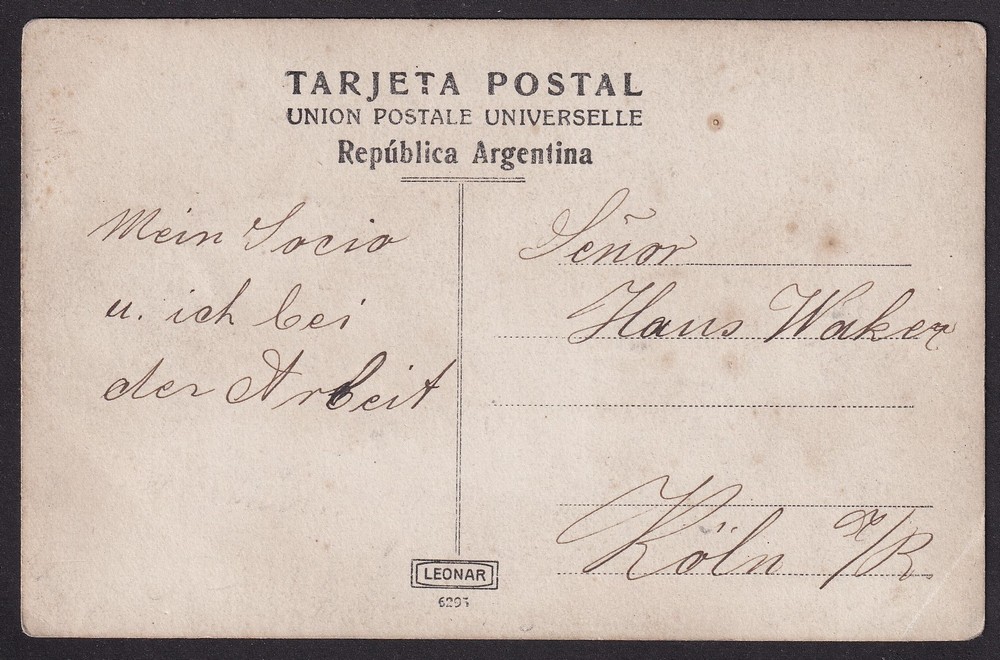 TARJETA POSTAL
UNION POSTALE UNIVERSELLE
República Argentina
Mein Socio
u. ich bei
der Arbeit
Señor
Hans Waker
Köln a/R
LEONAR
6293